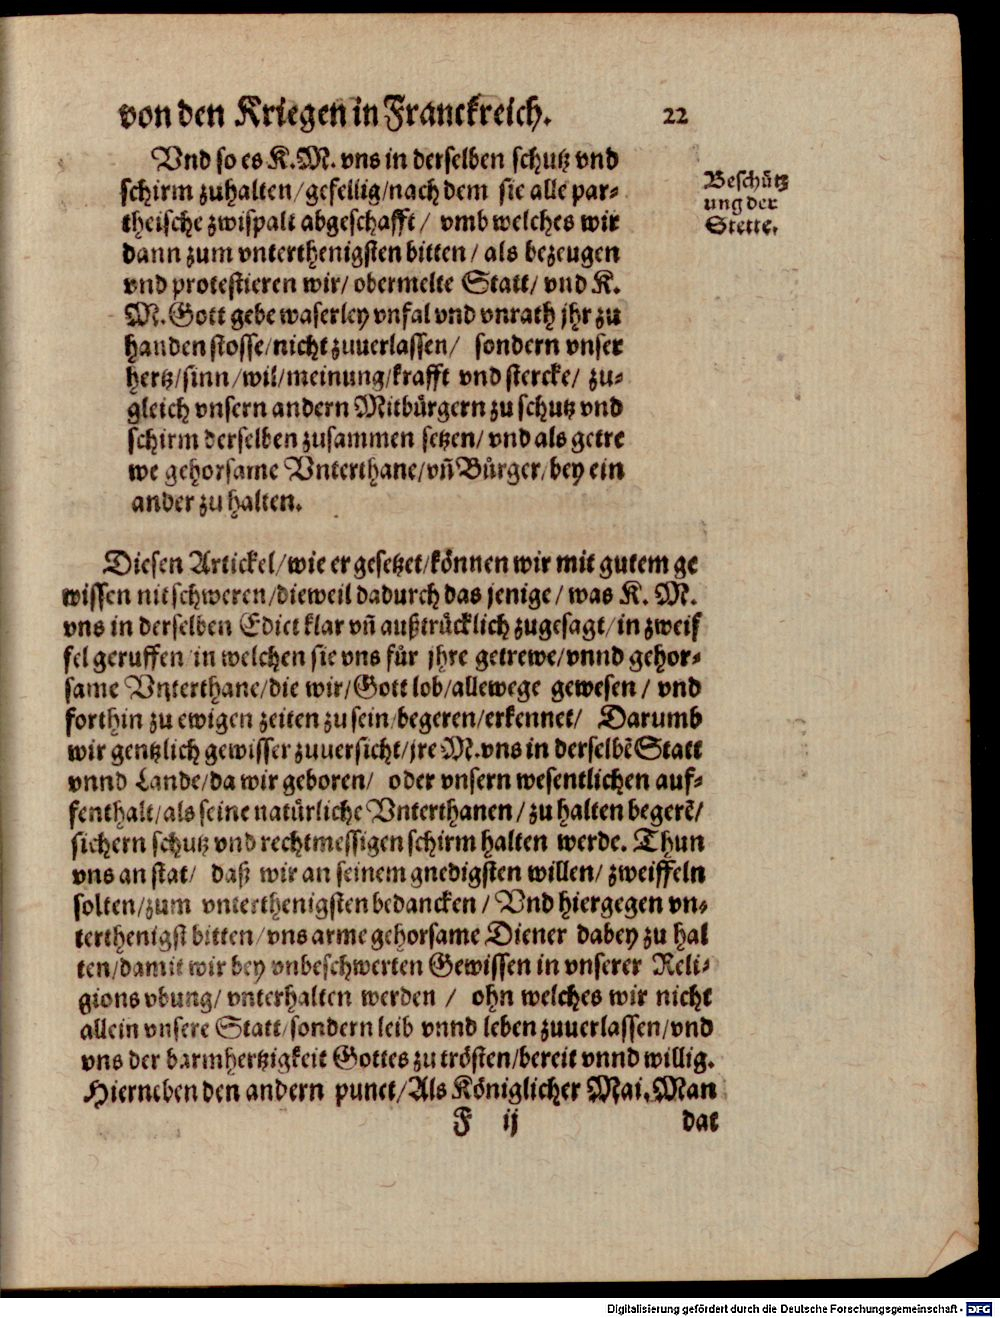 von den Kriegen in Franckreich. 22
Vnd so es K. M. vns in derselben schutz vnd
schirm zuhalten/gefellig/nach dem sie alle par-
theische zwispalt abgeschafft/ vmb welches wir
dann zum vnterthenigsten bitten/ als bezeugen
vnd protestieren wir/ obermelte Statt/ vnd K.
M. Gott gebe waserley vnfal vnd vnrath jhr zu
handen stosse/nicht zuuerlassen/ sondern vnser
hertz/sinn/wil/meinung/krafft vnd stercke/ zu-
gleich vnsern andern Mitbürgern zu schutz vnd
schirm derselben zusammen setzen/ vnd als getre
we gehorsame Vnterthane/vñ Bürger/bey ein
ander zu halten.
Beschütz
ung der
Stette.
Diesen Artickel/wie er gesetzet/können wir mit gutem ge
wissen nit schweren/dieweil dadurch das jenige/ was K. M.
vns in derselben Edict klar vñ außtrücklich zugesagt/in zweif
fel geruffen/in welchen sie vns für jhre getrewe/vnnd gehor-
same Vnterthane/die wir/Gott lob/allewege gewesen/ vnd
forthin zu ewigen zeiten zu sein/begeren/erkennet/ Darumb
wir gentzlich gewisser zuuersicht/jre M. vns in derselbē Statt
vnnd Lande/da wir geboren/ oder vnsern wesentlichen auf-
fenthalt/als seine natürliche Vnterthanen/zu halten begerē/
sichern schutz vnd rechtmessigen schirm halten werde. Thun
vns an stat/ daß wir an seinem gnedigsten willen/ zweiffeln
solten/zum vnterthenigsten bedancken/ Vnd hiergegen vn-
terthenigst bitten/vns arme gehorsame Diener dabey zu hal
ten/damit wir bey vnbeschwerten Gewissen in vnserer Reli-
gions vbung/ vnterhalten werden/ ohn welches wir nicht
allein vnsere Statt/sondern leib vnnd leben zuuerlassen/vnd
vns der barmhertzigkeit Gottes zu trösten/bereit vnnd willig.
Hierneben den andern punct/Als Königlicher Mai. Man
F ij dat
Digitalisierung gefördert durch die Deutsche Forschungsgemeinschaft - DFG